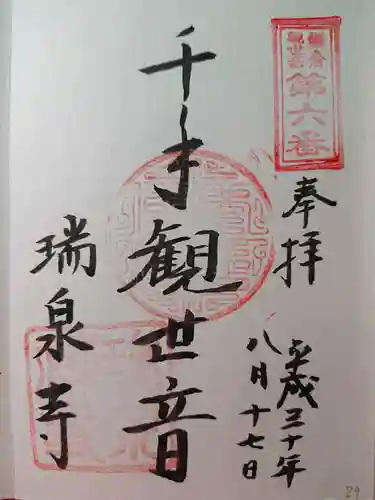 鎌倉
観世音
第六番
奉拝
平成三十年
八月十七日
千手観世音
瑞泉寺
29